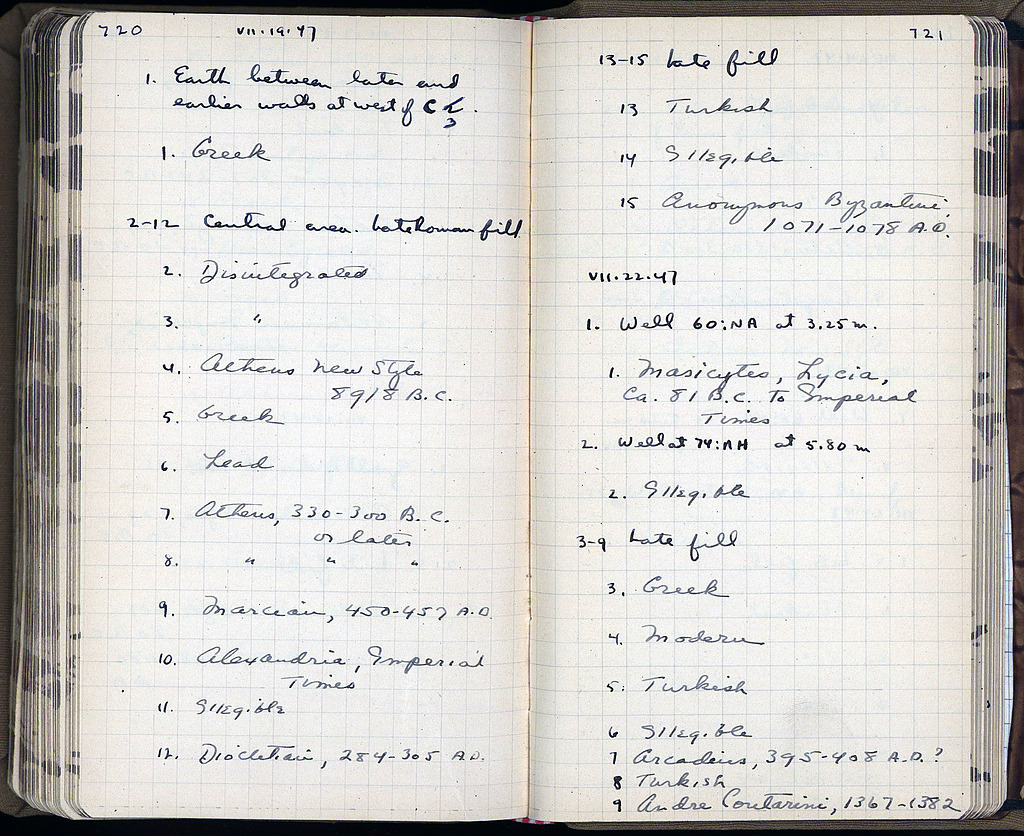 720
VII·19·47
1. Earth between later and
earlier walls at west of C
3
1. Greek
2-12 Central area. Late Roman fill
2. Disintegrated
3. "
4. Athens New Style
89/8 B.C.
5. Greek
6. Lead
7. Athens, 330-300 B.C.
or later
8. " " "
9. Marcian, 450-457 A.D.
10. Alexandria, Imperial
Times
11. Illegible
12. Diocletian, 284-305 A.D.
721
13-15 Late fill
13 Turkish
14 Illegible
15 Anonymous Byzantine,
1071-1078 A.D.
VII·22·47
1. Well 60:NA at 3.25 m.
1. Masicytes, Lycia,
Ca. 81 B.C. to Imperial
Times
2. Well at 74:AH at 5.80 m
2. Illegible
3-9 Late fill
3. Greek
4. Modern
5. Turkish
6 Illegible
7 Arcadius, 395-408 A.D.?
8 Turkish
9 Andre Contarini, 1367-1382